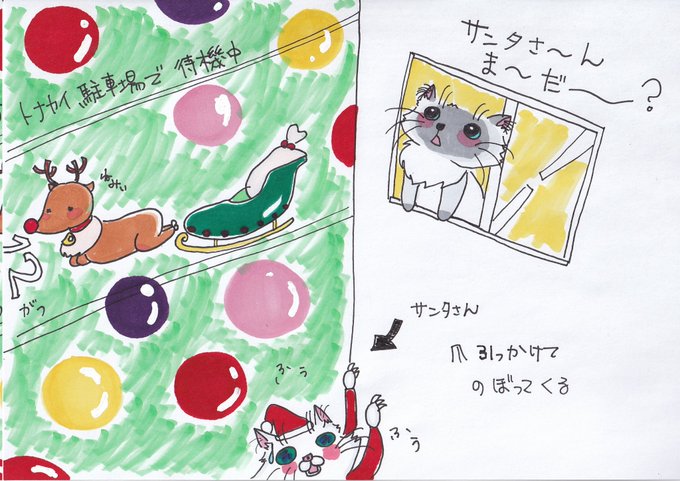 トナカイ 駐車場で 待機中
ねみい
12
がつ
サンタさ〜ん
ま〜だ〜?
サンタさん
爪 引っかけて
のぼってくる
ふぅ
ふぅ